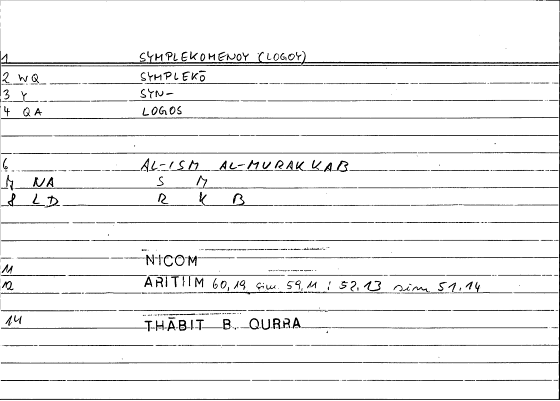 1 SYMPLEKOMENOY (LOGOY)
2 WQ SYMPLEKŌ
3 Y SYN-
4 QA LOGOS
6 AL-ISM AL-MURAKKAB
7 NA S M
8 LD R K B
11 NICOM
12 ARITIIM 60,19 sim. 59,11 ; 52.13 sim 51.14
14 THĀBIT B. QURRA